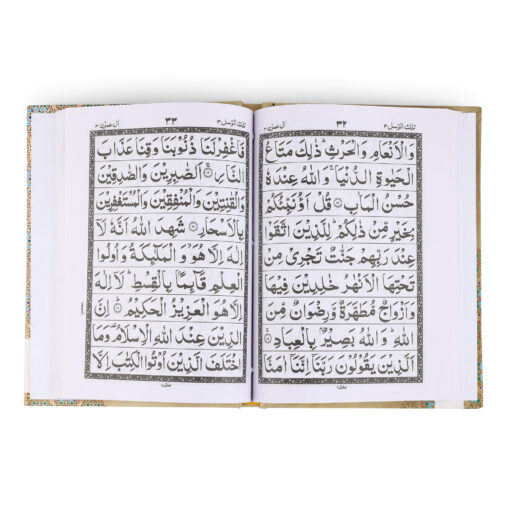 تلك الرسل ٣
٣٢
آل عمرٰن ٣
وَالْاَنْعَامِ وَالْحَرْثِ ذٰلِكَ مَتَاعُ
الْحَيٰوةِ الدُّنْيَا ۚ وَاللّٰهُ عِنْدَهٗ
حُسْنُ الْمَاٰبِ ۝ قُلْ اَؤُنَبِّئُكُمْ
بِخَيْرٍ مِّنْ ذٰلِكُمْ ؕ لِلَّذِيْنَ اتَّقَوْا
عِنْدَ رَبِّهِمْ جَنّٰتٌ تَجْرِيْ مِنْ
تَحْتِهَا الْاَنْهٰرُ خٰلِدِيْنَ فِيْهَا
وَاَزْوَاجٌ مُّطَهَّرَةٌ وَّرِضْوَانٌ مِّنَ
اللّٰهِ ؕ وَاللّٰهُ بَصِيْرٌۢ بِالْعِبَادِ ۝
اَلَّذِيْنَ يَقُوْلُوْنَ رَبَّنَاۤ اِنَّنَاۤ اٰمَنَّا
منزل ١
تلك الرسل ٣
٣٣
آل عمرٰن ٣
فَاغْفِرْ لَنَا ذُنُوْبَنَا وَقِنَا عَذَابَ
النَّارِ ۝ اَلصّٰبِرِيْنَ وَالصّٰدِقِيْنَ
وَالْقٰنِتِيْنَ وَالْمُنْفِقِيْنَ وَالْمُسْتَغْفِرِيْنَ
بِالْاَسْحَارِ ۝ شَهِدَ اللّٰهُ اَنَّهٗ لَاۤ
اِلٰهَ اِلَّا هُوَ ۙ وَالْمَلٰٓئِكَةُ وَاُولُوا
الْعِلْمِ قَآئِمًۢا بِالْقِسْطِ ؕ لَاۤ اِلٰهَ
اِلَّا هُوَ الْعَزِيْزُ الْحَكِيْمُ ۝ اِنَّ
الدِّيْنَ عِنْدَ اللّٰهِ الْاِسْلَامُ ۫ وَمَا
اخْتَلَفَ الَّذِيْنَ اُوْتُوا الْكِتٰبَ اِلَّا
منزل ١